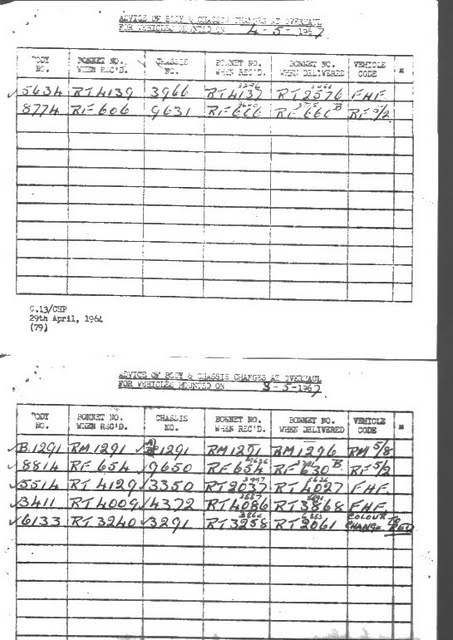 ADVICE OF BODY & CHASSIS CHANGES AT OVERHAUL
FOR VEHICLES MOUNTED ON 4-5-1967
BODY NO. BONNET NO. WHEN REC'D. CHASSIS NO. BONNET NO. WHEN REC'D. BONNET NO. WHEN DELIVERED VEHICLE CODE
5634 RT4139 3966 RT4137 RT2576 FHF
8774 RF606 9631 RF666 RF661 B RF5/2
G.13/CHP
29th April, 1964
(79)
ADVICE OF BODY & CHASSIS CHANGES AT OVERHAUL
FOR VEHICLES MOUNTED ON 3-5-1967
BODY NO. BONNET NO. WHEN REC'D. CHASSIS NO. BONNET NO. WHEN REC'D. BONNET NO. WHEN DELIVERED VEHICLE CODE
B.1291 RM1291 1291 RM1291 RM1296 RM5/8
8814 RF654 9650 RF654 RF630 B RF5/2
5514 RT4129 3350 RT2037 RT4027 FHF
3411 RT4009 4372 RT4086 RT3868 FHF
6133 RT3240 3291 RT3258 RT2061 COLOUR CHANGE RED